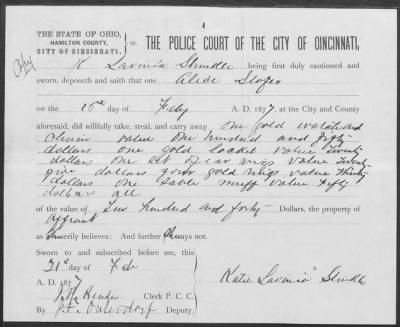 Copy
THE STATE OF OHIO,
HAMILTON COUNTY, ss.
CITY OF CINCINNATI.
THE POLICE COURT OF THE CITY OF CINCINNATI,
K Lavinia Shinkle being first duly cautioned and
sworn, deposeth and saith that one Alice
on the 20th day of Feby A. D. 1877, at the City and County
aforesaid, did willfully take, steal, and carry away one gold watch and
Chain value one hundred and fifty
dollars one gold locket value Twenty
dollars one set of ear rings value Twenty
five dollars four gold rings value thirty
dollars one Sable muff value fifty
dollars all
of the value of Two hundred and forty Dollars, the property of
affiant
as she verily believes: And further she says not.
Sworn to and subscribed before me, this
21st day of Feb
A. D. 1877
Clerk P. C. C.
By Deputy.
Katie Lavinia Shinkle